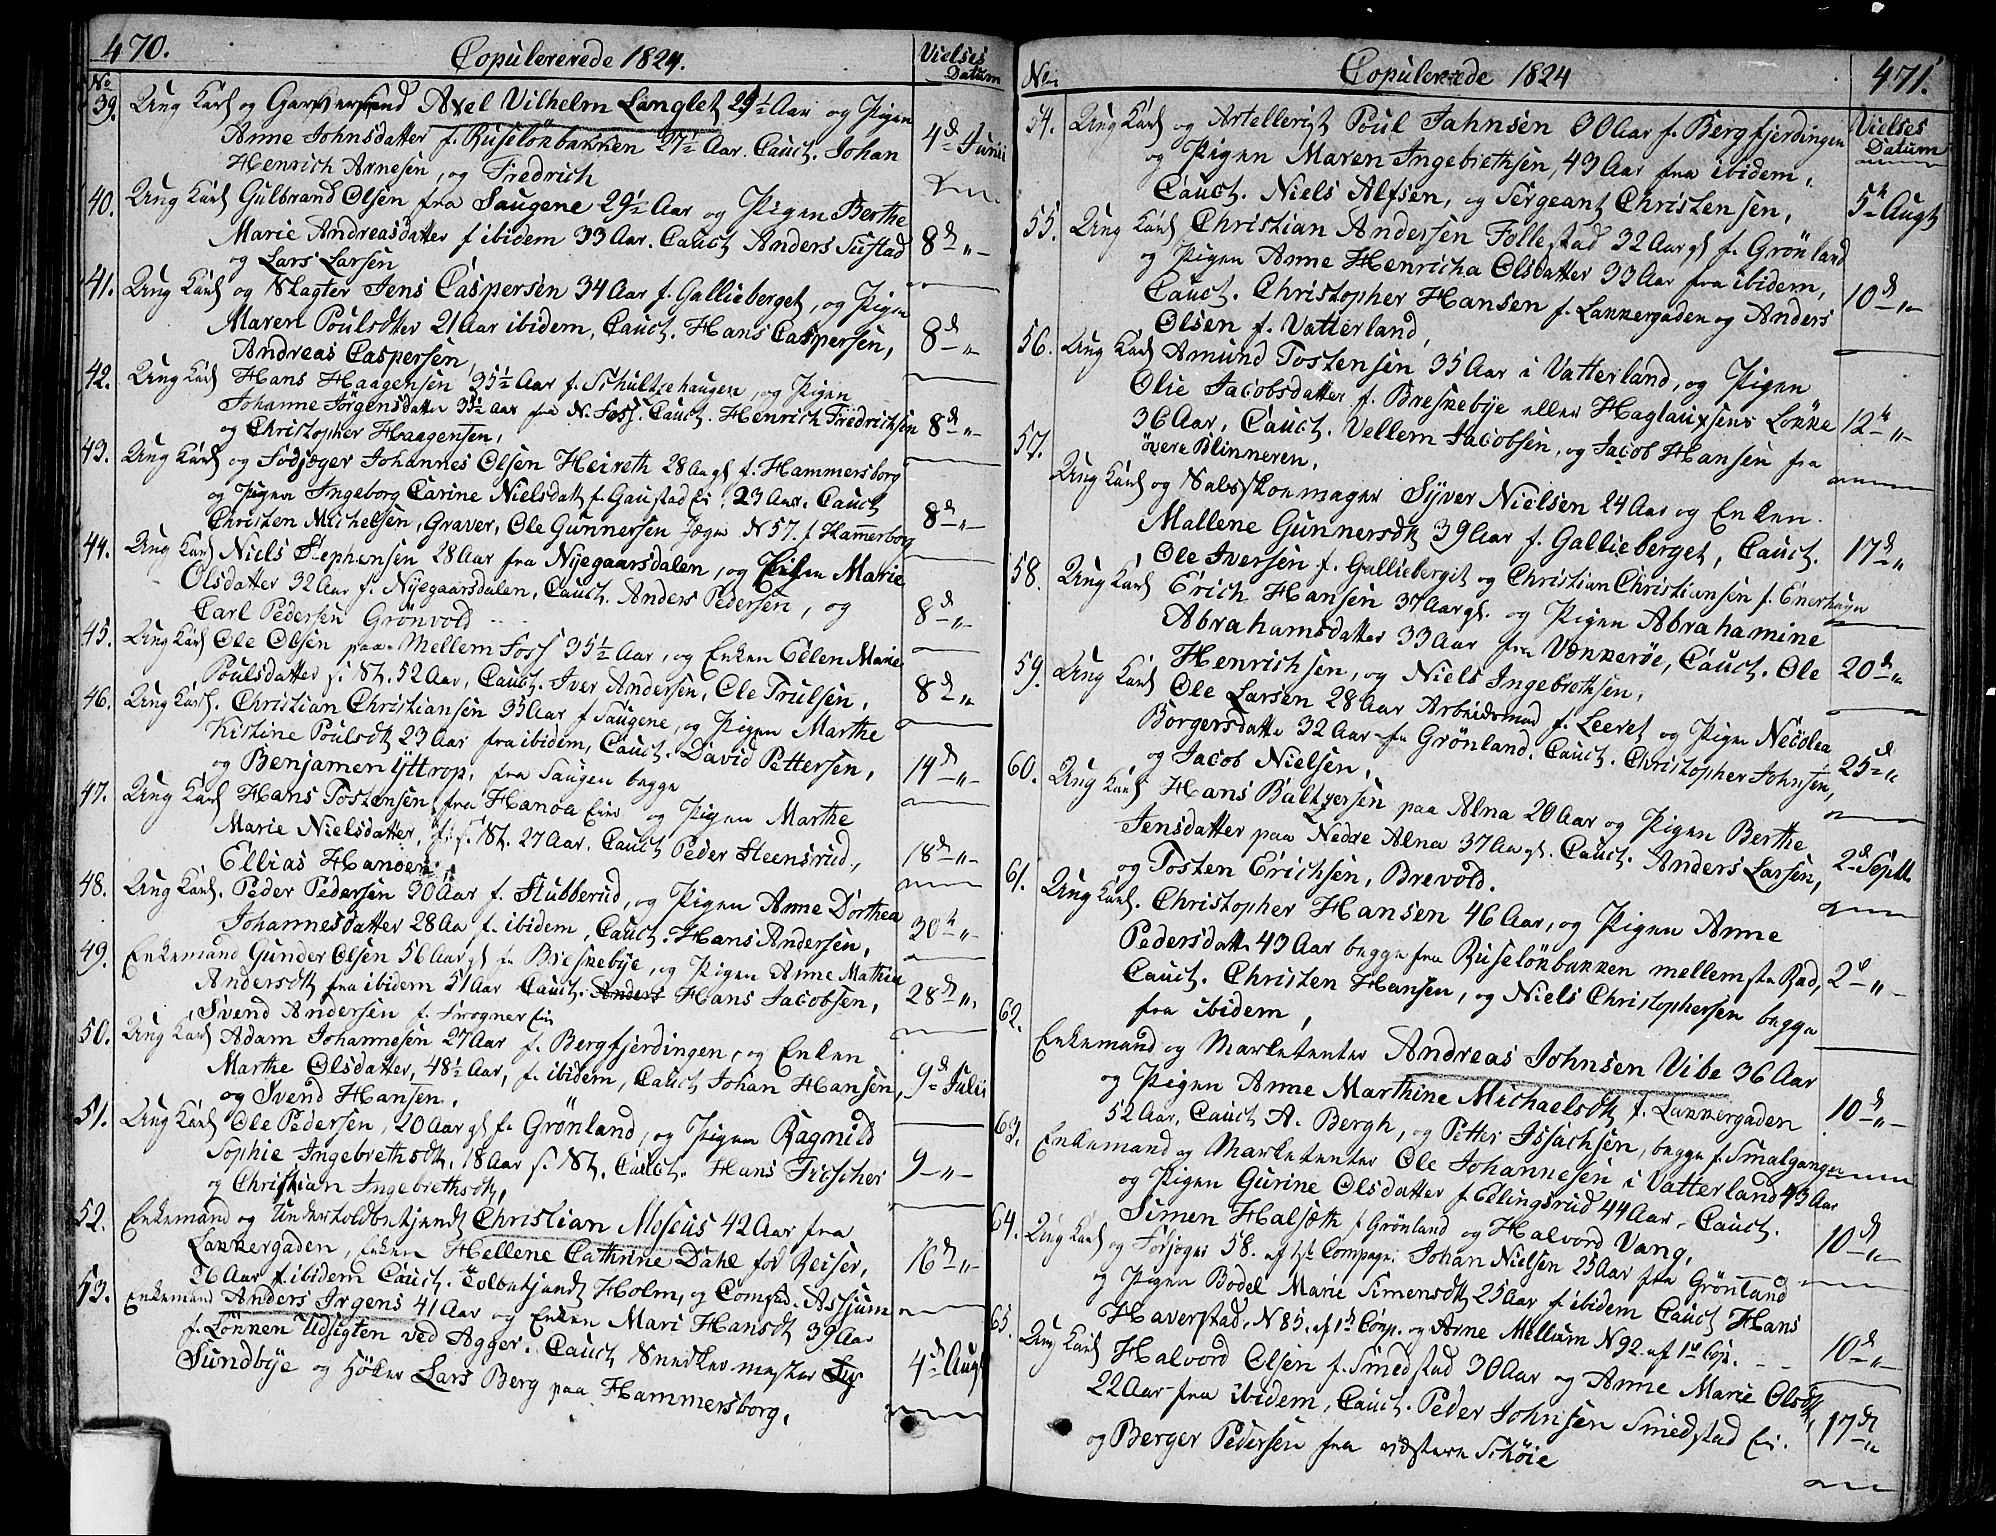 470.
Copulererede 1824.
Vielses
Datum
No
39. Ung Karl og Axel Vilhelm Langlet 29½ Aar og Pigen
Anne Johnsdatter f. Ruselønbakken 27½ Aar. Cauct. Johan
Henrich Arnesen, og Fredrich
4d Junii
40. Ung Karl Gulbrand Olsen fra Saugene 29½ Aar og Pigen Berthe
Marie Andreasdatter f ibidem 33 Aar. Cauct Anders Sustad
og Lars Larsen
8d "
41. Ung Karl og Slagter Jens Caspersen 34 Aar f. Gallieberget, og Pigen
Maren Poulsdtter 21 Aar ibidem, Cauct. Hans Caspersen,
Andreas Caspersen,
8d "
42. Ung Karl Hans Haagensen 35½ Aar f. Schultzehaugen, og Pigen
Johanne Jörgensdatter 35½ Aar fra N. Foss. Cauct. Henrich Friedrichsen
og Christopher Haagensen,
8d "
43. Ung Karl og Fodjæger Johannes Olsen Heireth 28 Aar gl f. Hammersborg
og Pigen Ingeborg Carine Nielsdatt f. Gaustad Ei, 23 Aar. Cauct
Christen Michelsen, Graver, Ole Gunnersen Jæger N 57. f Hammerborg
8d "
44. Ung Karl Niels Stephensen 28 Aar fra Nyegaarsdalen, og Marie
Olsdatter 32 Aar f. Nyegaarsdalen, Cauct. Anders Pedersen, og
Carl Pedersen Grönvold
8d "
45. Ung Karl Ole Olsen paa Mellem Foss 35½ Aar, og Enken Ellen Marie
Poulsdatter f. St. 52 Aar, Cauct. Iver Andersen, Ole Trulsen,
8d "
46. Ung Karl. Christian Christiansen 35 Aar f Saugene, og Pigen Marthe
Kistine Poulsdtt 23 Aar fra ibidem, Cauct. David Pettersen,
og Benjamen Yttrop, fra Saugen begge
14d "
47. Ung Karl Hans Tostensen fra Hanoa Eie og Pigen Marthe
Marie Nielsdatter, f. St. 27 Aar, Cauct Peder Steensrud,
Ellias Hanoen
18d "
48. Ung Karl. Peder Pedersen 30 Aar f. Stubberud, og Pigen Anne Dorthea
Johannesdatter 28 Aar f. ibidem, Cauct. Hans Andersen,
30h "
49. Enkemand Gunder Olsen 56 Aar gl fr Breskebye, og Pigen Anne Mathia
Andersdtt fra ibidem 51 Aar Cauct. Anders Hans Jacobsen,
Svend Andersen f. Frogner Eie
28d "
50. Ung Karl Adam Johannesen 27 Aar f. Bergfjerdingen, og Enken
Marthe Olsdatter, 48½ Aar, f. ibidem, Cauct Johan Hansen,
og Svend Hansen,
9d Julii
51. Ung Karl Ole Pedersen, 20 Aar gl fr. Grönland, og Pigen Ragnild
Sophie Ingebrethsdtt, 18 Aar f. St, Cauct. Hans Fischer
og Christian Ingebrethsdtt,
9 "
52. Enkemand og Underholdbetjendt Christian Moseus 42 Aar fra
Lakkergaden, Enken Hellene Cathrine Dahl for Reiser,
26 Aar f. ibidem Cauct. Tolbetjendt Holm, og Assjum
16d "
53. Enkemand Anders Irgens 41 Aar og Enken Mari Hansdtt 39 Aar
f. Løkken Udsigten ved Agger. Cauct Snedkermester
Sundbye og Höker Lars Berg paa Hammersborg.
4d Augt

No
Copulerede 1824
471.
Vielses
Datum
54. Ung Karl og Artellerist Poul Jahnsen 30 Aar f. Bergfjerdingen
og Pigen Maren Ingebrethsen, 43 Aar fra ibidem,
Cauct. Niels Alfsen, og Sergeant Christensen,
5h Augt
55. Ung Karl Christian Andersen Follestad 32 Aar gl f. Grönland
og Pigen Anne Henricha Olsdatter 33 Aar fra ibidem,
Cauct. Christopher Hansen f. Lakkergaden og Anders
Olsen f. Vatterland,
10d "
56. Ung Karl Amund Tostensen 35 Aar i Vatterland, og Pigen
Olie Jacobsdatter f. Breskebye eller Haglaugsens Løkke
36 Aar, Cauct. Vellem Jacobsen, og Jacob Hansen fra
övere Blinneren,
12te "
57. Ung Karl og Skoemager Syver Nielsen 24 Aar og Enken
Mallene Gunnersdtt 39 Aar f. Gallieberget, Cauct.
Ole Iversen f. Gallieberget og Christian Christiansen f. Enerhagen
17d "
58. Ung Karl Erich Hansen 37 Aar gl. og Pigen Abrahamine
Abrahamsdatter 33 Aar fra Vækkerøe, Cauct. Ole
Henrichsen, og Niels Ingebrethsen,
20d "
59. Ung Karl Ole Larsen 28 Aar Arbeidsmand f. Leeret og Pigen Necolea
Borgersdatter 32 Aar fra Grönland. Cauct. Christopher Johnsen,
og Jacob Nielsen,
25d "
60. Ung Karl Hans Baltzersen paa Alna 20 Aar og Pigen Berthe
Jensdatter paa Nedre Alna 37 Aar gl. Cauct. Anders Larsen,
og Tosten Erichsen, Brevold.
2d Septb.
61. Ung Karl. Christopher Hansen 46 Aar, og Pigen Anne
Pedersdatter 43 Aar begge fra Ruseløkbakken mellemste Rad,
Cauct. Christen Hansen, og Niels Christophersen begge
fra ibidem,
2d "
62. Enkemand og Marketenter Andreas Johnsen Vibe 36 Aar
og Pigen Anne Marthine Michaelsdtt f. Lakkergaden
52 Aar, Cauct A. Bergh, og Petter Isachsen, begge f. Smalgangen
10d "
63. Enkemand og Marketenter Ole Johannesen i Vatterland 43 Aar
og Pigen Gurine Olsdatter f. Edlingsrud 44 Aar, Cauct.
Simen Halseth f. Grönland og Halvord Vang,
10d "
64. Ung Karl og Fodjæger 58. af 1ste Compagn. Johan Nielsen 25 Aar fra Grønland
og Pigen Bodel Marie Simensdtt 25 Aar f. ibidem Cauct Hans
Haverstad, N 85. af 1st Comp. og Arne Mellum N 92. af 1st Cop.
10d "
65. Ung Karl Halvord Olsen f. Smedstad 30 Aar og Anne Marie Olsdtt,
22 Aar fra ibidem, Cauct. Peder Johnsen Smedstad Eie.
og Berger Pedersen fra Schöie
17d "